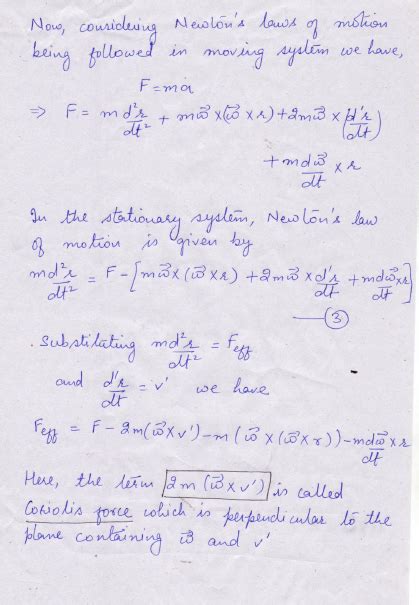 Now, considering Newton's laws of motion
being followed in moving system we have,
F = ma
⇒ F = m d²r/dt² + mω⃗ × (ω⃗ × r) + 2mω⃗ × (d'r/dt)
+ m dω⃗/dt × r
In the stationary system, Newton's law
of motion is given by
m d²r/dt² = F - [mω⃗ × (ω⃗ × r) + 2mω⃗ × d'r/dt + m dω⃗/dt × r]
— ③
. Substitating m d²r/dt² = Feff
and d'r/dt = v' we have
Feff = F - 2m(ω⃗ × v') - m (ω⃗ × (ω⃗ × r)) - m dω⃗/dt × r
Here, the term 2m (ω⃗ × v') is called
Coriolis force which is perpendicular to the
plane containing ω⃗ and v'